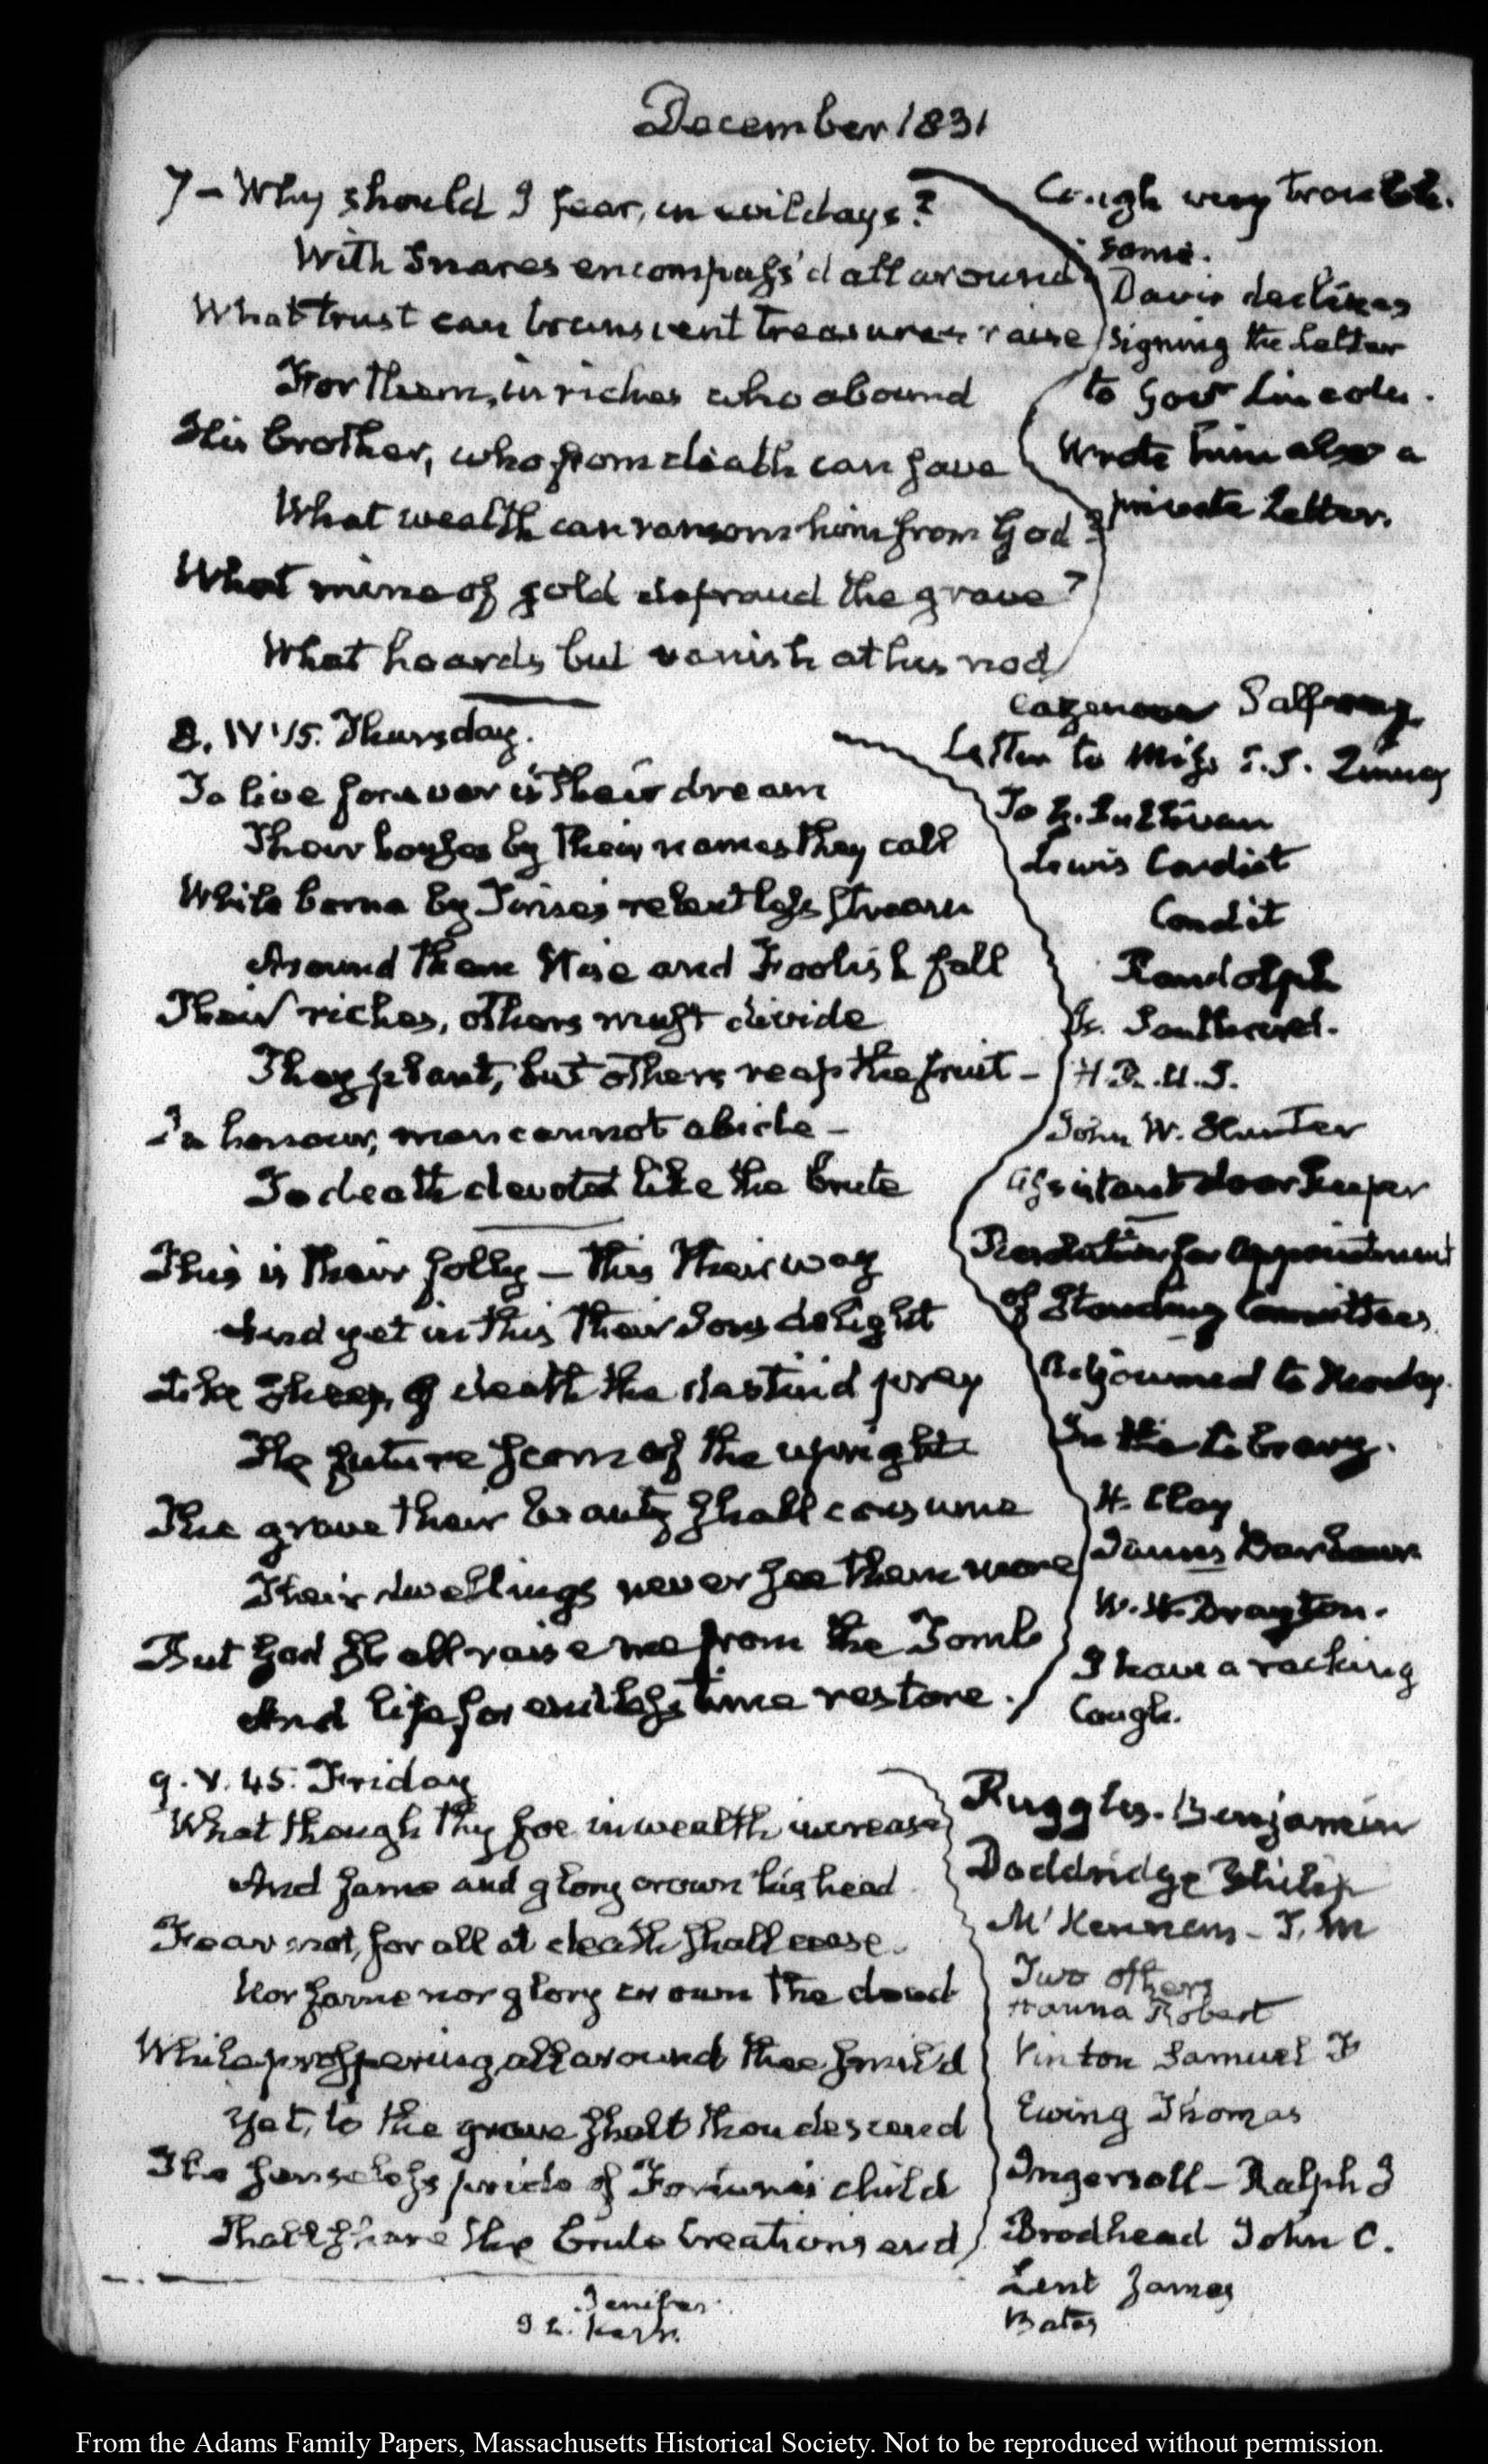 December 1831
7 – Why should I fear, in evil days?
With snares encompass'd all around
What trust can transient treasures raise
For them, in riches who abound
His brother, who from death can save
What wealth can ransom him from God?
What mine of gold defraud the grave?
What hoards but vanish at his nod
Cough very trouble-
some.
Davis declines
signing the Letter
to Govr Lincoln.
Wrote him also a
private Letter.
8. IV. 15. Thursday.
To live forever is their dream
Their houses by their names they call
While borne by Time's relentless stream
Around them Wise and Foolish fall
Their riches, others must divide
They plant, but others reap the fruit –
In honour, man cannot abide –
To death devoted like the brute
This is their folly – this their way
And yet in this their Sons delight
Like sheep, of death the destin'd prey
The future scorn of the upright
The grave their beauty shall consume
Their dwellings never see them more
But God shall raise me from the Tomb
And life for endless time restore.
Letter to Miss
Lewis Condict
Condit
Randolph
Southard.
H.R.U.S.
John W. Hunter
assistant doorkeeper
Resolution for appointment
of Standing Committees
Adjourned to Monday.
In the Library.
H. Clay
James Barbour
W. Drayton.
I have a racking
Cough.
9. V. 45. Friday
What though thy foe in wealth increase
And fame and glory crown his head
Fear not, for all at death shall cease.
Nor fame nor glory crown the dead
While prospering all around thee smil'd
Yet, to the grave shalt thou descend
The senseless pride of Fortune's child
Shall share the brute creation's end
Ruggles. Benjamin
Doddridge Philip
McKennan – T. M
Two others
Hanna Robert
Vinton Samuel F
Ewing Thomas
Ingersoll – Ralph I
Brodhead John C.
Lent James
Bates
Jenifer.
Kerr.
From the Adams Family Papers, Massachusetts Historical Society. Not to be reproduced without permission.